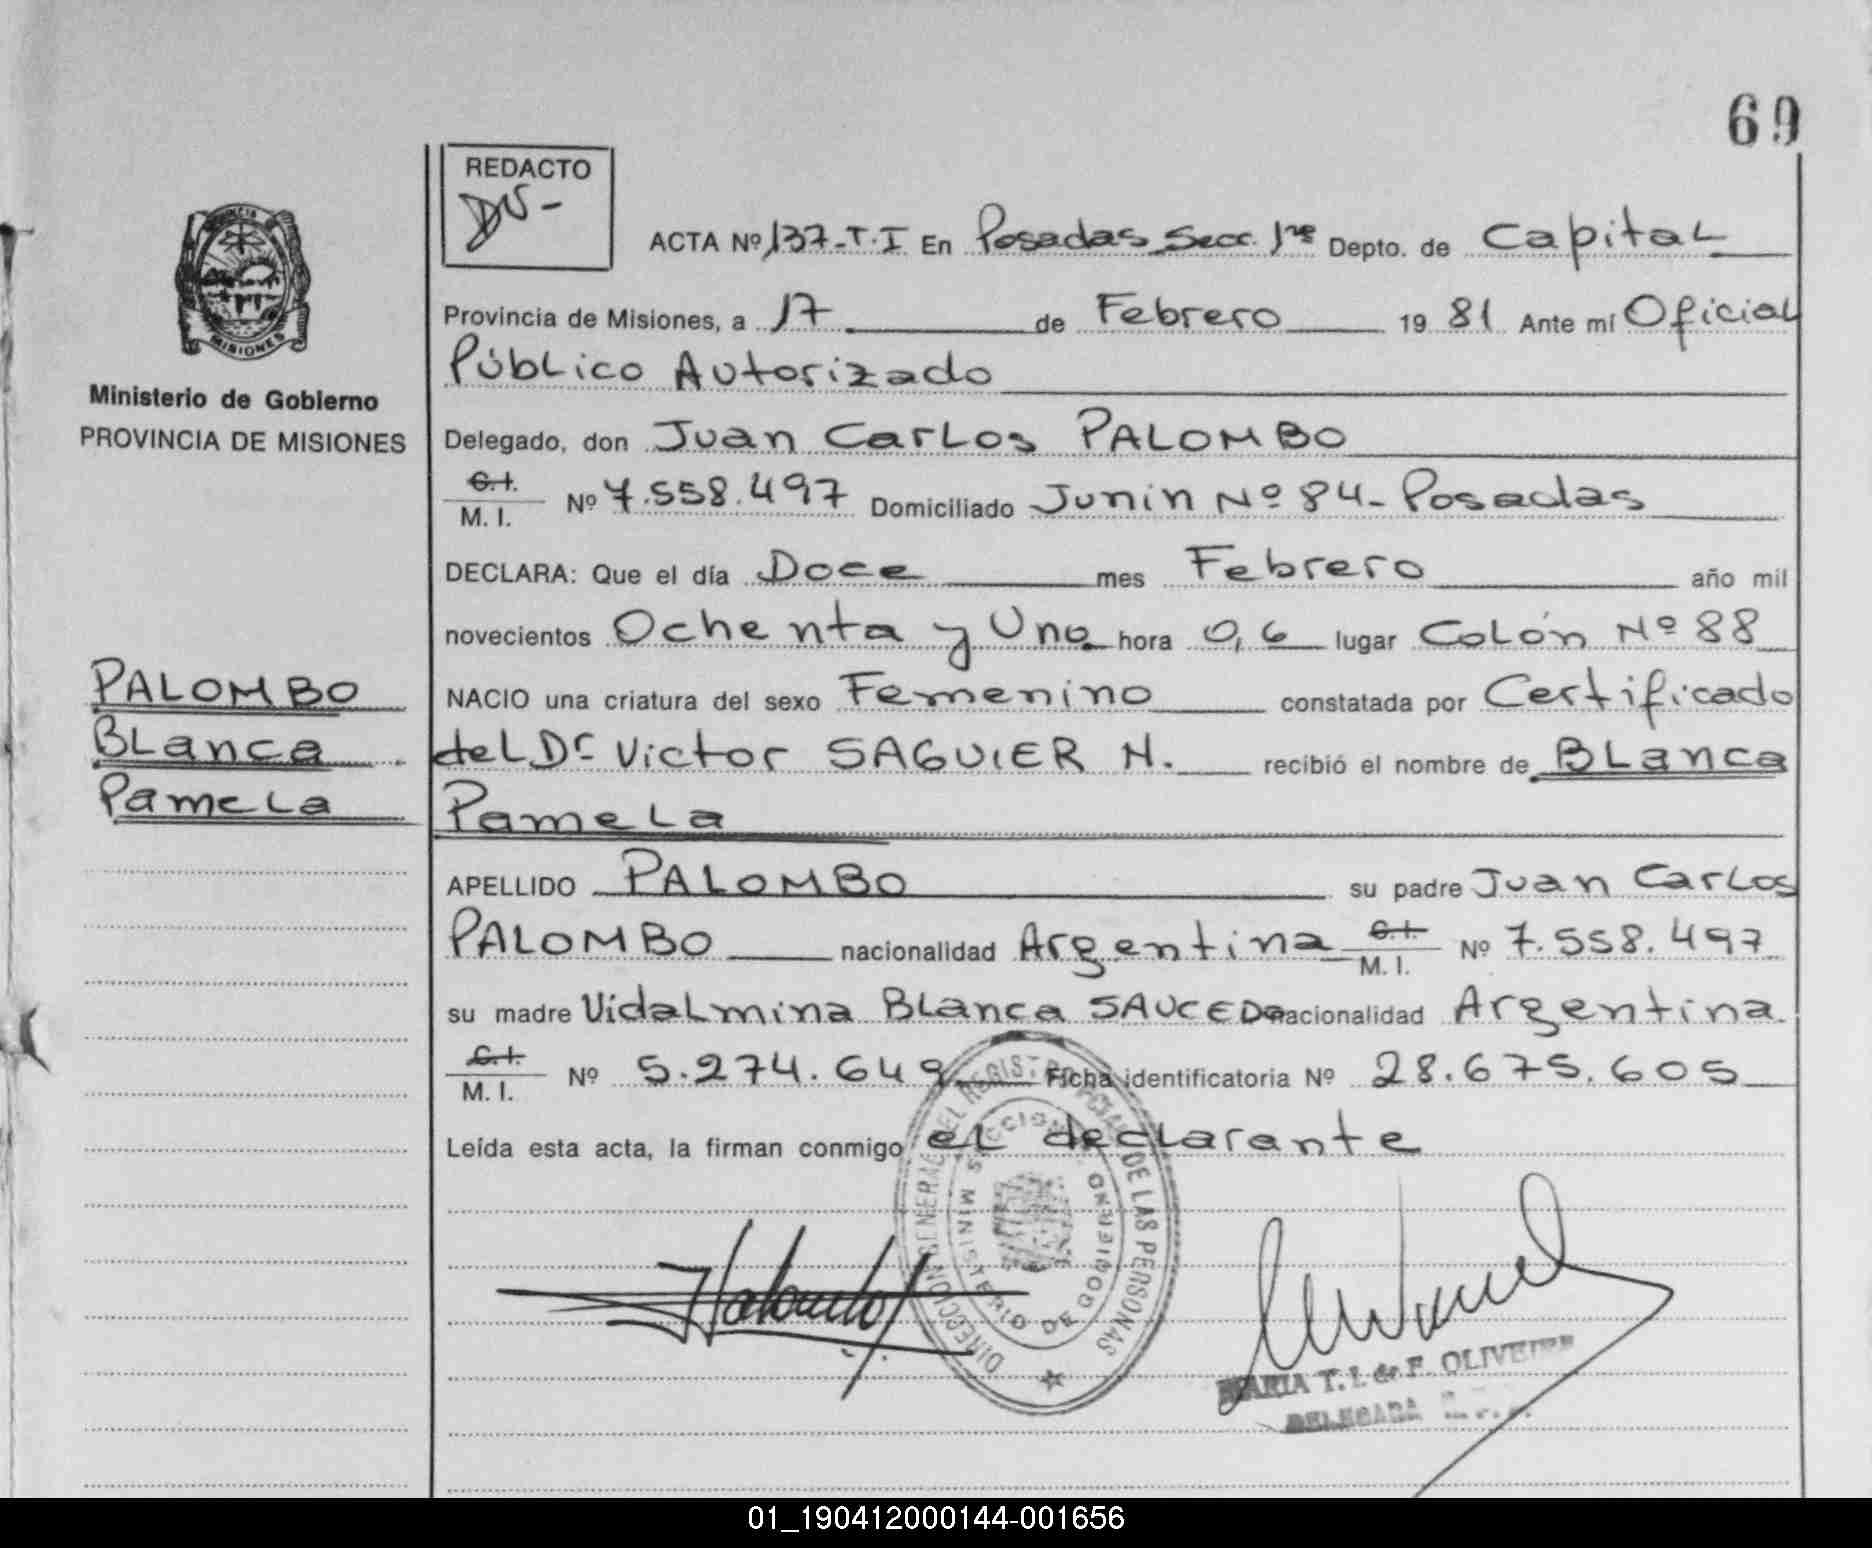 69
REDACTO
ACTA Nº 137-T.I En Posadas Secc. 1ra Depto. de Capital
Provincia de Misiones, a 17 de Febrero 1981 Ante mí Oficial
Público Autorizado
Delegado, don Juan Carlos PALOMBO
C.I.
M. I. Nº 7.558.497 Domiciliado Junin Nº 84- Posadas
DECLARA: Que el día Doce mes Febrero año mil
novecientos Ochenta y Uno hora 0,6 lugar Colón Nº 88
NACIO una criatura del sexo Femenino constatada por Certificado
del Dr Victor SAGUIER N. recibió el nombre de Blanca
Pamela
APELLIDO PALOMBO su padre Juan Carlos
PALOMBO nacionalidad Argentina C.I. M. I. Nº 7.558.497
su madre Vidalmina Blanca SAUCEDO nacionalidad Argentina
C.I.
M. I. Nº 5.274.649 Ficha identificatoria Nº 28.675.605
Leída esta acta, la firman conmigo el declarante
MISIONES
Ministerio de Gobierno
PROVINCIA DE MISIONES
PALOMBO
Blanca
Pamela
DIRECCION GENERAL DEL REGISTRO PROVINCIAL DE LAS PERSONAS
MINISTERIO DE GOBIERNO
MARIA T. I. de F. OLIVEIRA
DELEGADA
01_190412000144-001656